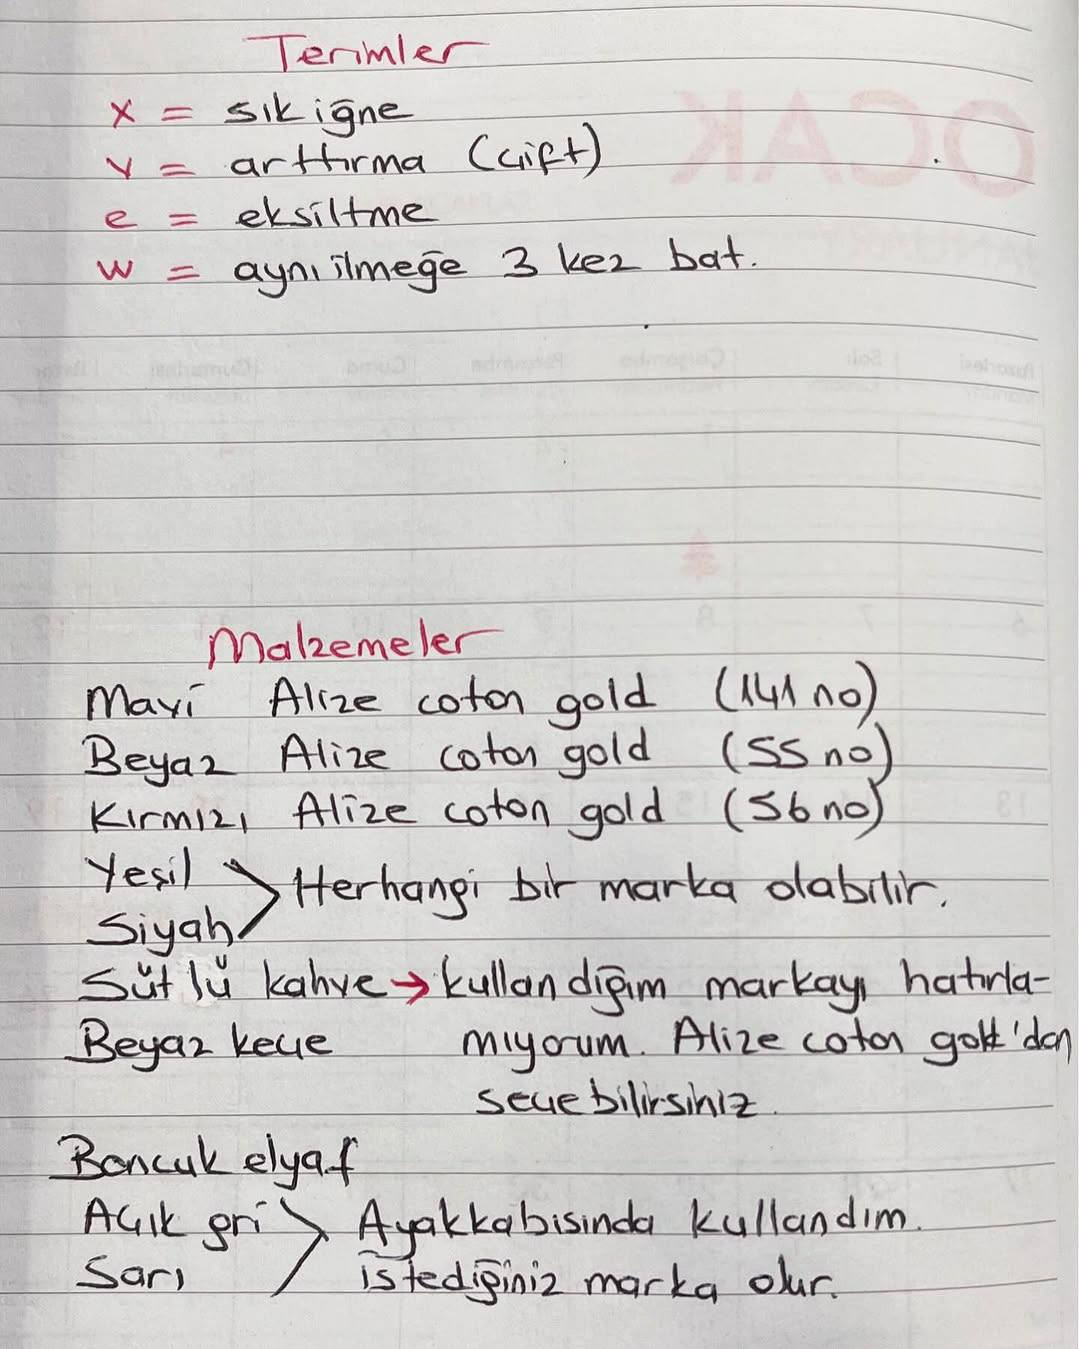 Terimler
x = sık iğne
v = arttırma (çift)
e = eksiltme
w = aynı ilmeğe 3 kez bat.
OCAK
Malzemeler
Mavi Alize coton gold (141 no)
Beyaz Alize coton gold (55 no)
Kırmızı Alize coton gold (56 no)
Yeşil
Siyah
Herhangi bir marka olabilir.
Sütlü kahve → kullandığım markayı hatırla-
mıyorum. Alize coton gold'dan
seçebilirsiniz.
Beyaz keçe
Boncuk elyaf
Açık gri
Sarı
Ayakkabısında kullandım.
istediğiniz marka olur.